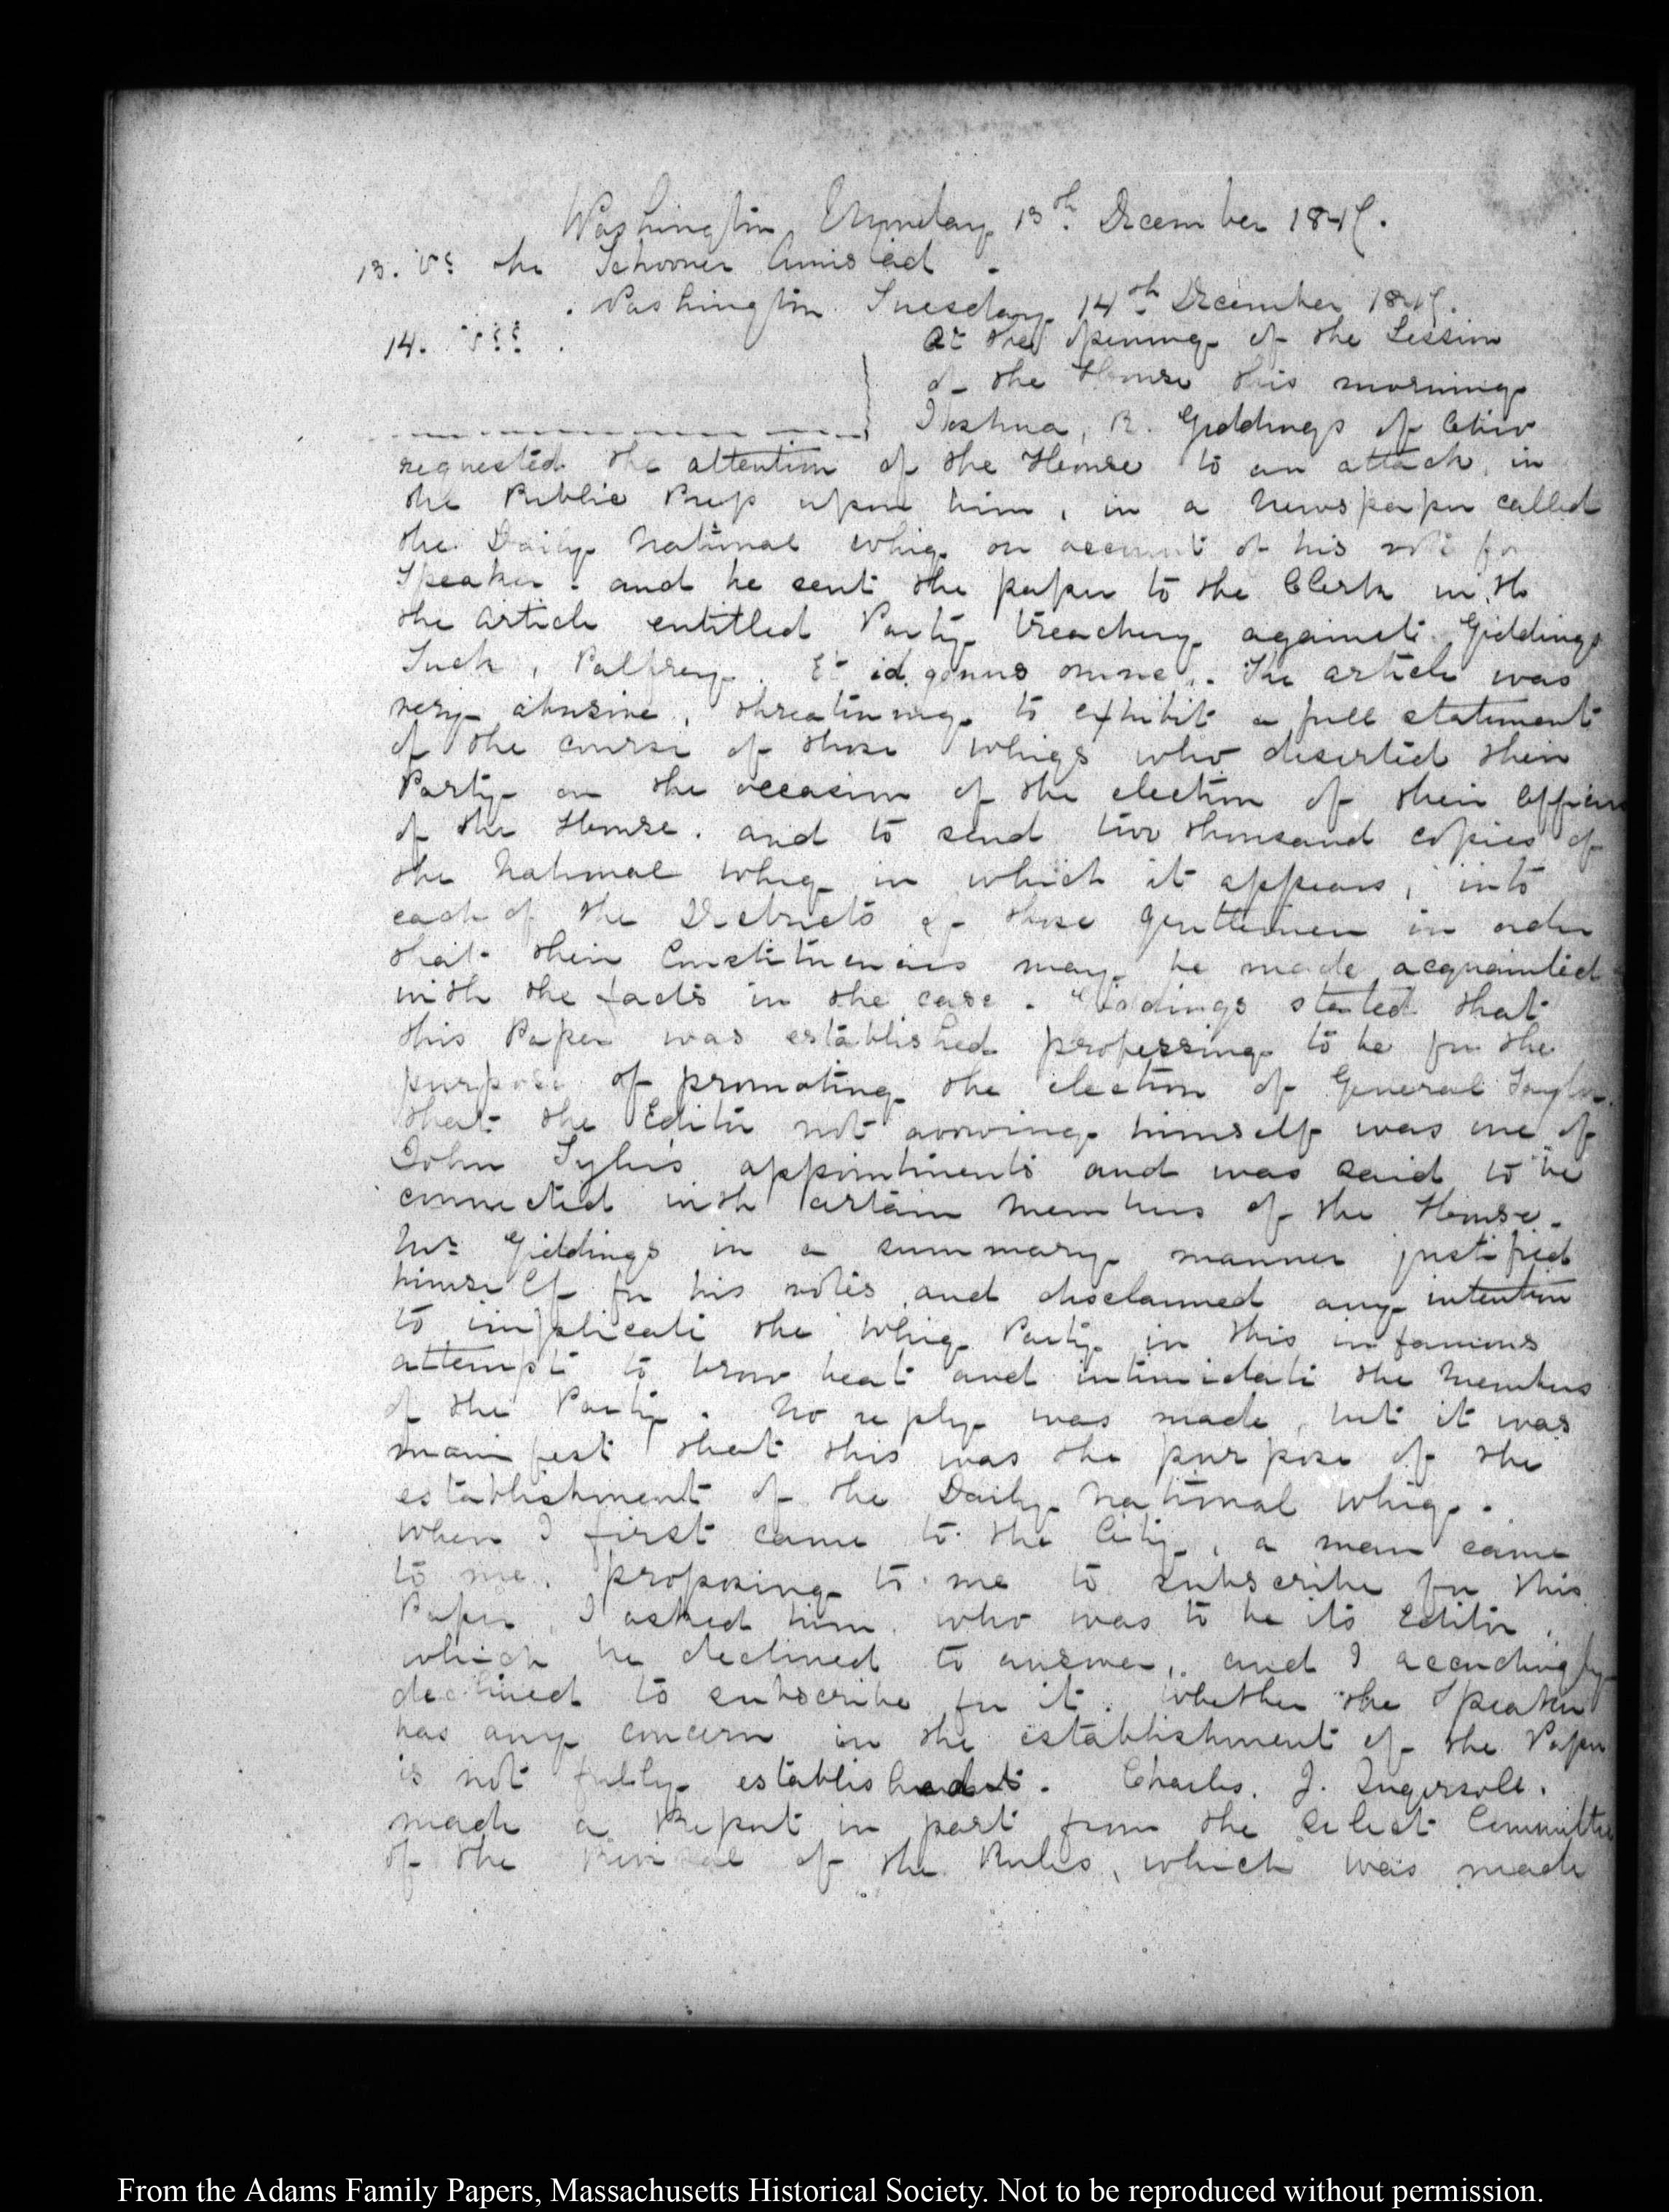 Washington Monday 13th December 1847.
13. V: the Schooner Amistad.
Washington Tuesday 14th December 1847.
14. V:
At the opening of the Session
of the House this morning
Joshua, R. Giddings of Ohio
requested the attention of the House to an attack in
the Public Press upon him, in a Newspaper called
the Daily National Whig on account of his vote for
Speaker. and he sent the paper to the Clerk with
the Article entitled Party treachery against Giddings
Tuck, Palfrey. Et id genus omne. The article was
very abusive, threatening to exhibit a full statement
of the course of those Whigs who deserted their
Party on the occasion of the election of their Officers
of the House. and to send two thousand copies of
the National Whig in which it appears, into
each of the Districts of those Gentlemen in order
that their Constituencies may be made acquainted
with the facts in the case. Giddings stated that
this Paper was established professing to be for the
purpose of promoting the election of General Taylor.
that the Editor not avowing himself was one of
John Tyler's appointments and was said to be
connected with certain Members of the House.
Mr. Giddings in a summary manner justified
himself for his votes and disclaimed any intention
to implicate the Whig Party in this infamous
attempt to brow beat and intimidate the Members
of the Party. No reply was made, but it was
manifest that this was the purpose of the
establishment of the Daily National Whig.
When I first came to the City, a man came
to me, proposing to me to subscribe for this
Paper, I asked him who was to be its Editor,
which he declined to answer, and I accordingly
declined to subscribe for it. Whether the Speaker
has any concern in the establishment of the Paper
is not fully established. Charles. J. Ingersoll.
made a Report in part from the Select Committee
of the of the Rules, which was made
From the Adams Family Papers, Massachusetts Historical Society. Not to be reproduced without permission.